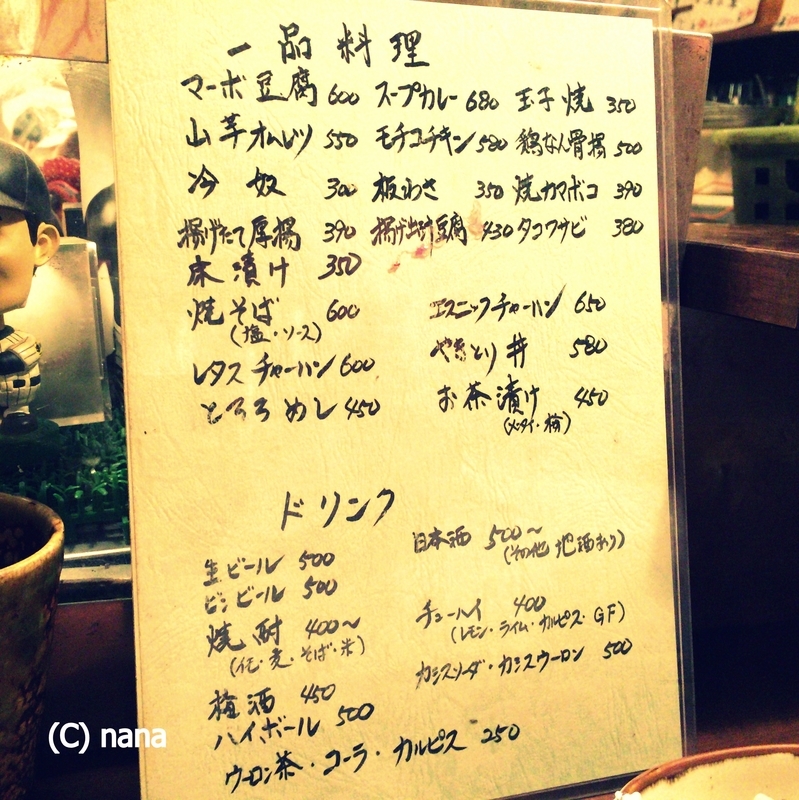 一品料理
マーボ豆腐 600 スープカレー 680 玉子焼 350
山芋オムレツ 550 モチコチキン 580 鶏なん骨揚 500
冷奴 300 板わさ 350 焼カマボコ 390
揚げたて厚揚 390 揚げ出汁豆腐 430 タコワサビ 380
床漬け 350
焼そば 600 エスニックチャーハン 650
(塩・ソース)
やきとり丼 580
レタスチャーハン 600
お茶漬け 450
とろろめし 450
ドリンク
生ビール 500
ビンビール 500
焼酎 400〜
(イモ・麦・そば・米)
梅酒 450
ハイボール 500
日本酒 500〜
(その他 地酒あり)
チューハイ 400
(レモン・ライム・カルピス・GF)
カシスソーダ・カシスウーロン 500
ウーロン茶・コーラ・カルピス 250
(C) nana